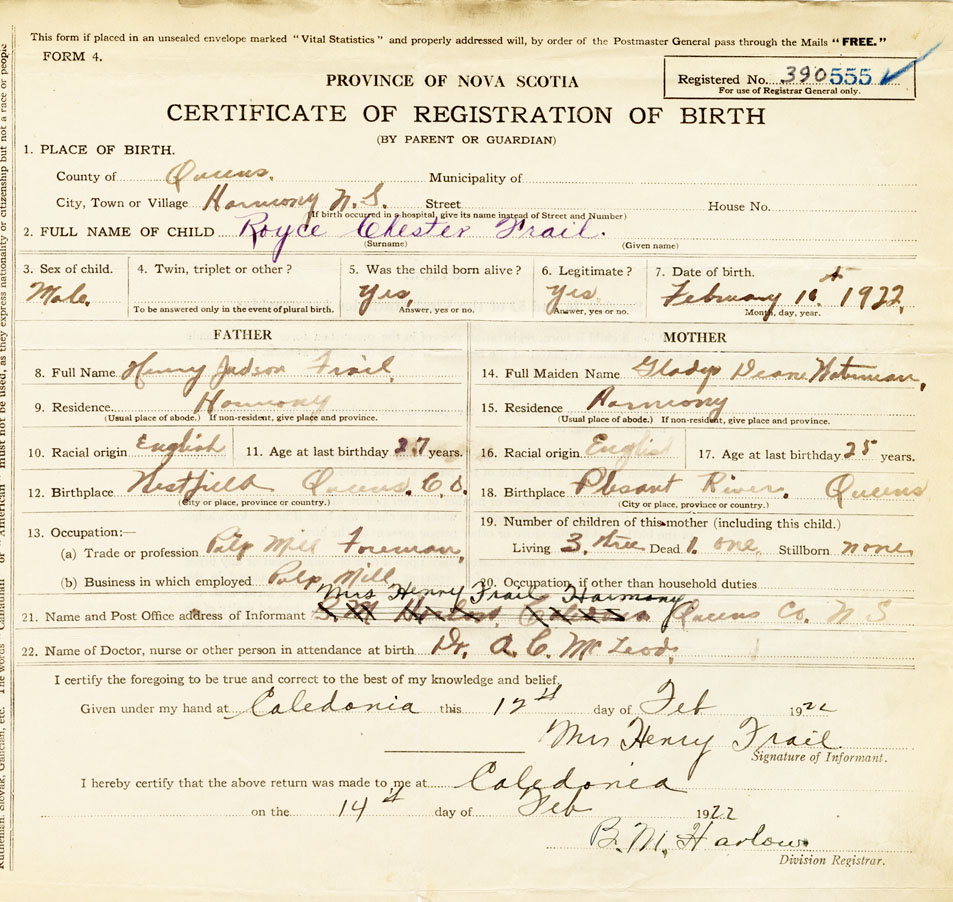 This form if placed in an unsealed envelope marked "Vital Statistics" and properly addressed will, by order of the Postmaster General pass through the Mails "FREE."
FORM 4.
PROVINCE OF NOVA SCOTIA
Registered No. 390555
For use of Registrar General only.
CERTIFICATE OF REGISTRATION OF BIRTH
(BY PARENT OR GUARDIAN)
1. PLACE OF BIRTH.
County of Queens. Municipality of
City, Town or Village Harmony N.S. Street House No.
(If birth occurred in a hospital, give its name instead of Street and Number)
2. FULL NAME OF CHILD Royce Chester Frail.
(Surname) (Given name)
3. Sex of child. Male.
4. Twin, triplet or other?
To be answered only in the event of plural birth.
5. Was the child born alive? Yes,
Answer, yes or no.
6. Legitimate? Yes
Answer, yes or no.
7. Date of birth. February 1922,
Month, day, year.
FATHER
8. Full Name Henry Judson Frail,
9. Residence. Harmony
(Usual place of abode.) If non-resident, give place and province.
10. Racial origin English 11. Age at last birthday 27 years.
12. Birthplace Westfield Queens. Co.
(City or place, province or country.)
13. Occupation:—
(a) Trade or profession Pulp Mill Foreman,
(b) Business in which employed Pulp Mill
MOTHER
14. Full Maiden Name Gladys Deane Waterman,
15. Residence Harmony
(Usual place of abode.) If non-resident, give place and province.
16. Racial origin English 17. Age at last birthday 25 years.
18. Birthplace Plesant River. Queens
(City or place, province or country.)
19. Number of children of this mother (including this child.)
Living 3. tree Dead 1. one, Stillborn none
20. Occupation, if other than household duties
Mrs Henry Frail Harmony
21. Name and Post Office address of Informant Queens Co. N S
22. Name of Doctor, nurse or other person in attendance at birth Dr. A. C. McLeod,
I certify the foregoing to be true and correct to the best of my knowledge and belief.
Given under my hand at Caledonia this 12th day of Feb 1922
Mrs Henry Frail
Signature of Informant.
I hereby certify that the above return was made to me at Caledonia
on the 14th day of Feb 1922
B. M. Harlow
Division Registrar.